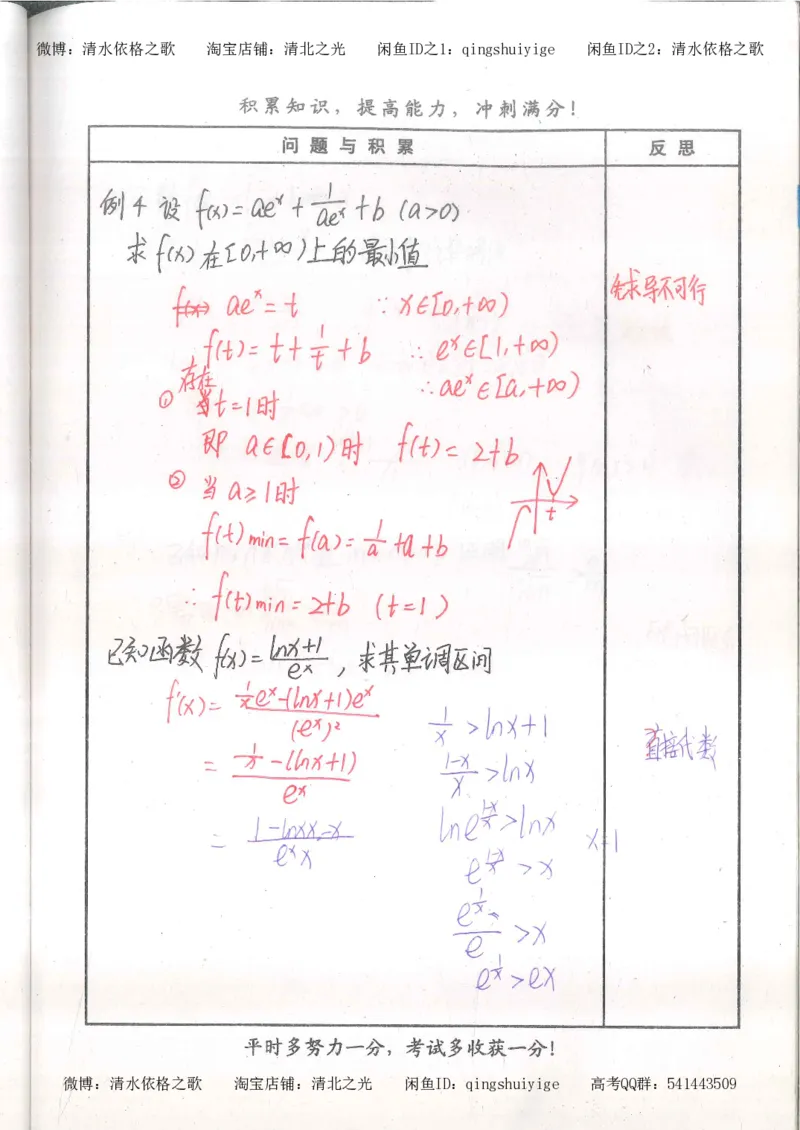 微博：清水依格之歌 淘宝店铺：清北之光 闲鱼ID之1：qingshuiyige 闲鱼ID之2：清水依格之歌
积累知识，提高能力，冲刺满分！
问题与积累 反思
例4 设 f(x)=ae^x+\frac{1}{ae^x}+b (a>0)
求 f(x) 在[0,+∞)上的最小值
ae^x=t ∵ x∈[0,+∞)
求导不可行
f(t)=t+\frac{1}{t}+b ∴ e^x∈[1,+∞)
∴ ae^x∈[a,+∞)
存在
① 当t=1时
即 a∈[0,1)时 f(t)=2+b
② 当 a≥1时
t
f(t)min=f(a)=\frac{1}{a}+a+b
∴ f(t)min=2+b (t=1)
已知函数 f(x)=\frac{lnx+1}{e^x}，求其单调区间
f'(x)=\frac{\frac{1}{x}e^x-(lnx+1)e^x}{(e^x)^2}
=\frac{\frac{1}{x}-(lnx+1)}{e^x}
=\frac{1-lnx x-x}{e^x x}
\frac{1}{x}>lnx+1
\frac{1-x}{x}>lnx
lne^{\frac{1-x}{x}}>lnx
e^{\frac{1-x}{x}}>x
\frac{e^{\frac{1}{x}}}{e}>x
e^{\frac{1}{x}}>ex
直接代数
平时多努力一分，考试多收获一分！
微博：清水依格之歌 淘宝店铺：清北之光 闲鱼ID：qingshuiyige 高考QQ群：541443509